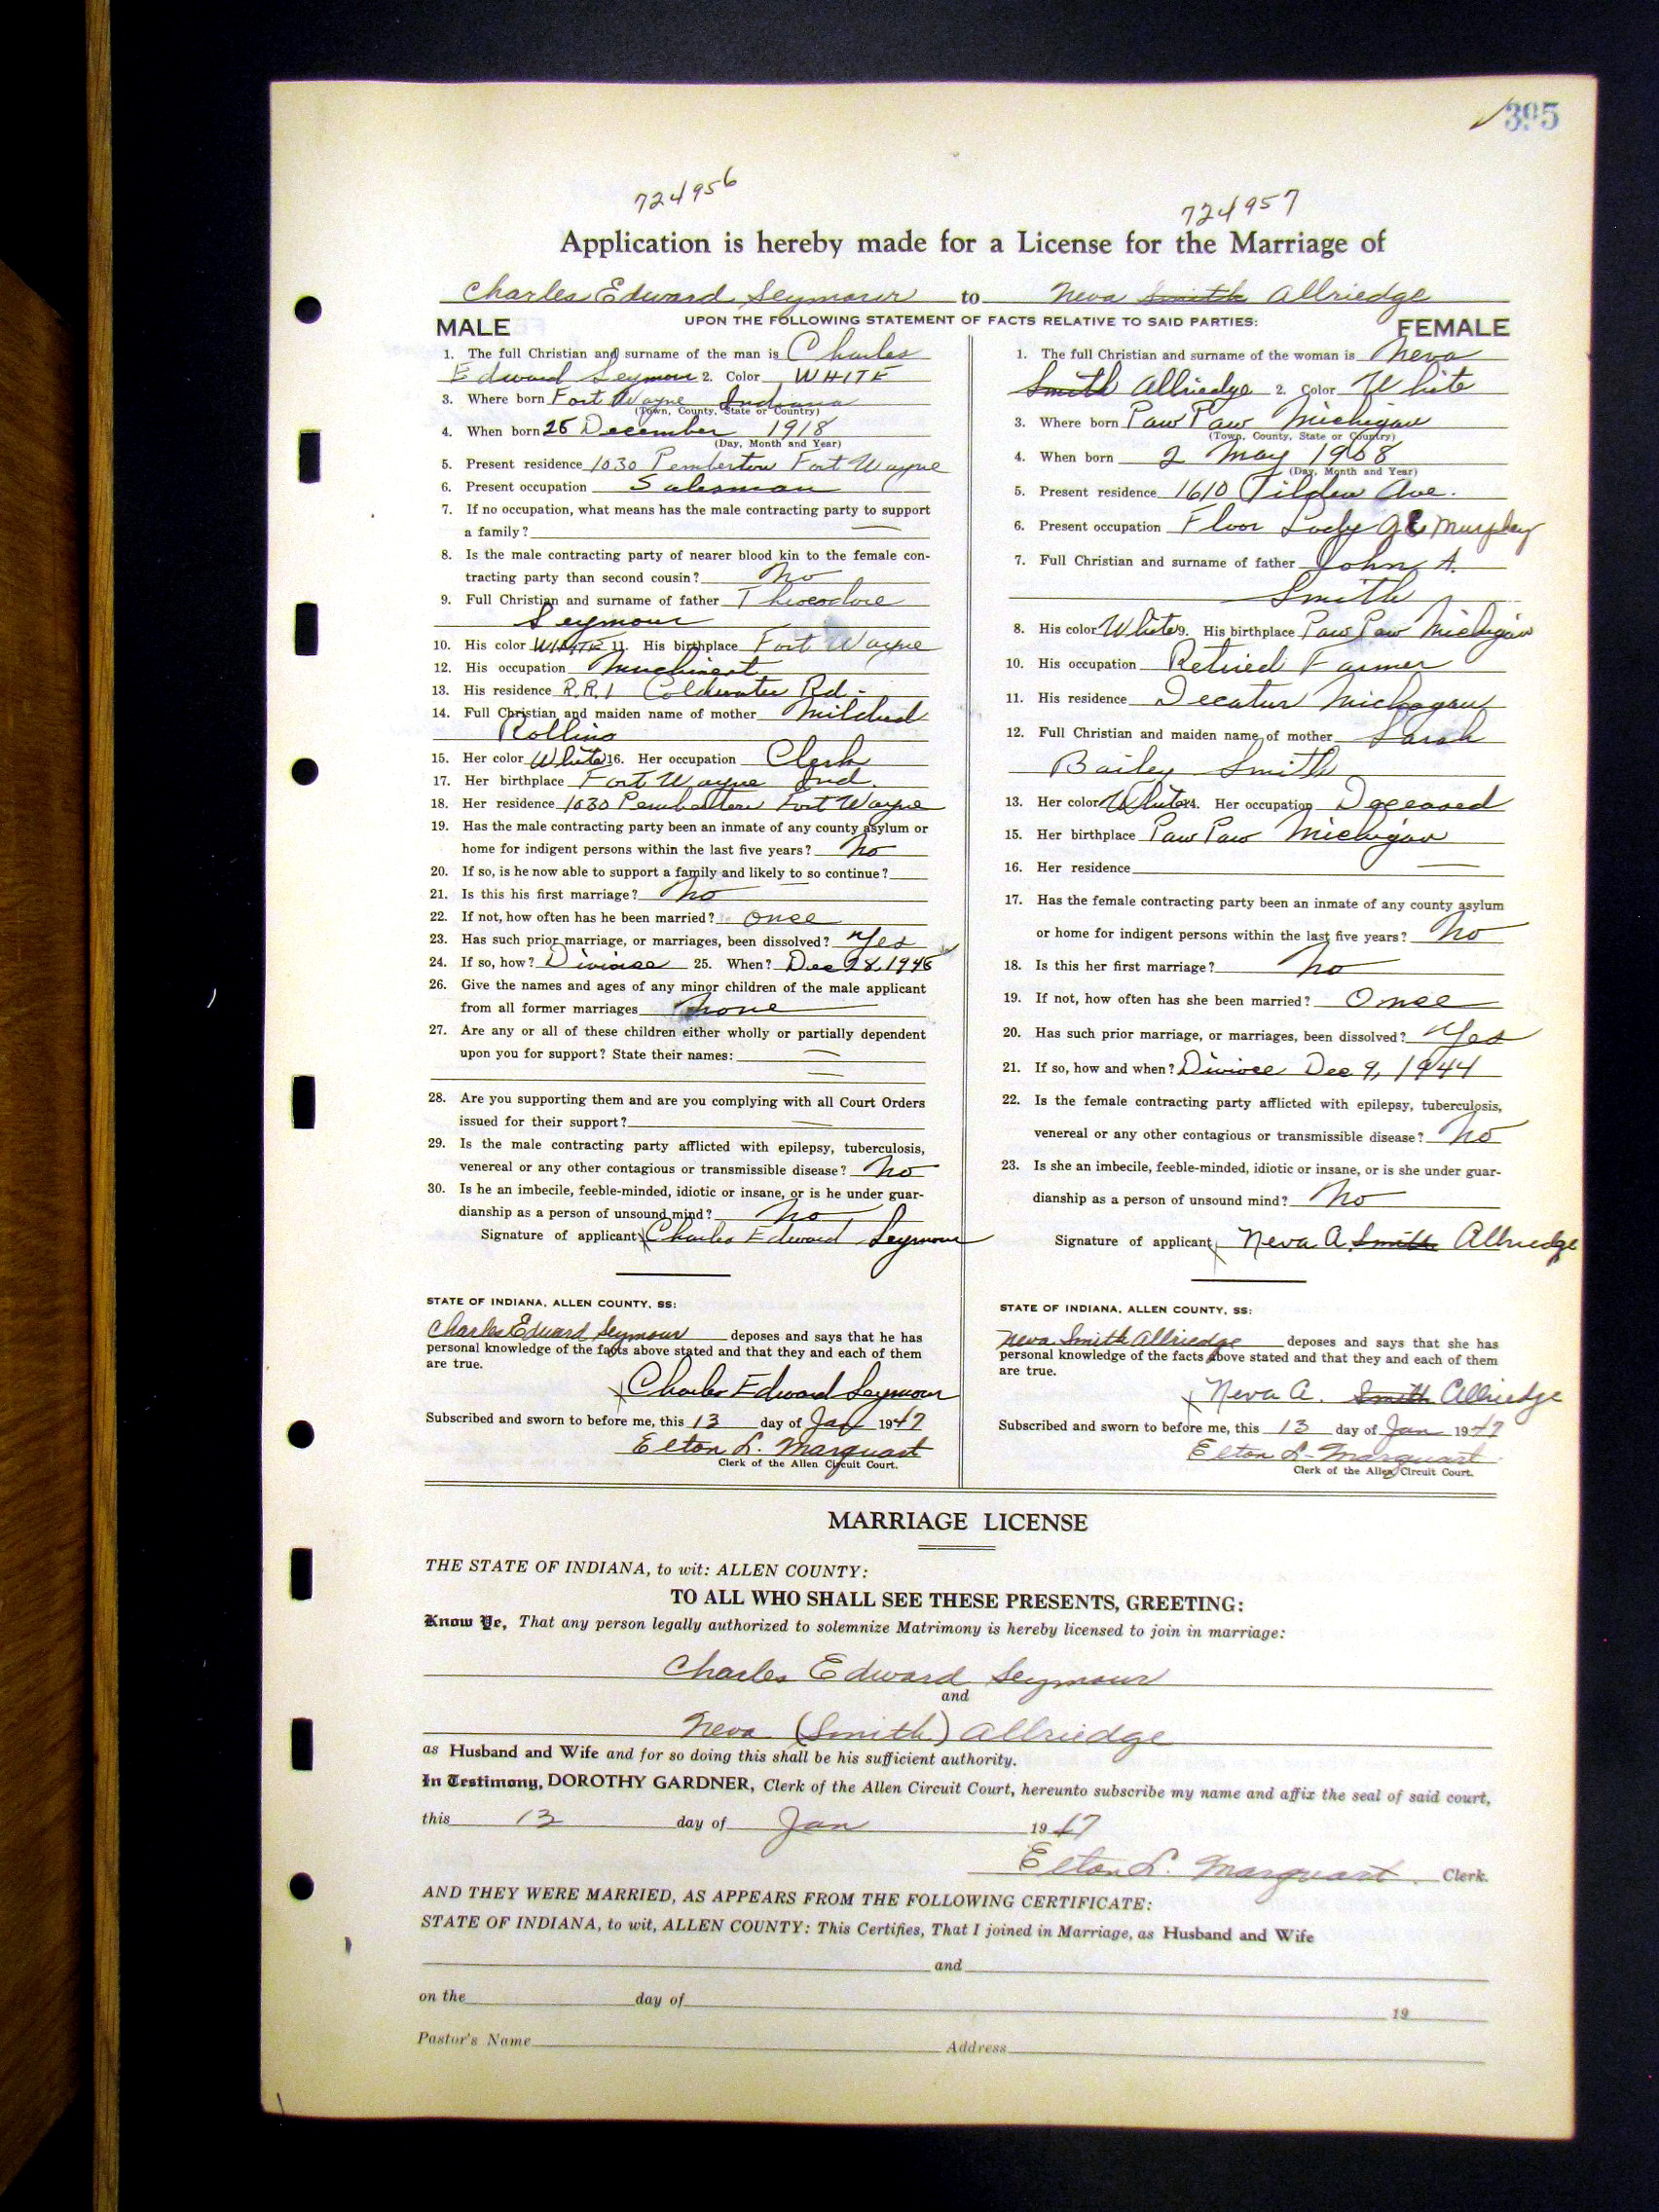 395
724956
724957
Application is hereby made for a License for the Marriage of
Charles Edward Seymour to Neva Smith Allriedge
UPON THE FOLLOWING STATEMENT OF FACTS RELATIVE TO SAID PARTIES:
MALE
1. The full Christian and surname of the man is Charles
Edward Seymour 2. Color WHITE
3. Where born Fort Wayne Indiana
(Town, County, State or Country)
4. When born 25 December 1918
(Day, Month and Year)
5. Present residence 1030 Pemberton Fort Wayne
6. Present occupation Salesman
7. If no occupation, what means has the male contracting party to support
a family?
8. Is the male contracting party of nearer blood kin to the female con-
tracting party than second cousin? No
9. Full Christian and surname of father Theodore
Seymour
10. His color WHITE 11. His birthplace Fort Wayne
12. His occupation Machinest
13. His residence R.R.1 Coldwater Rd.
14. Full Christian and maiden name of mother Mildred
Rollins
15. Her color White 16. Her occupation Clerk
17. Her birthplace Fort Wayne Ind.
18. Her residence 1030 Pemberton Fort Wayne
19. Has the male contracting party been an inmate of any county asylum or
home for indigent persons within the last five years? No
20. If so, is he now able to support a family and likely to so continue?
21. Is this his first marriage? No
22. If not, how often has he been married? Once
23. Has such prior marriage, or marriages, been dissolved? Yes
24. If so, how? Divorce 25. When? Dec 28, 1945
26. Give the names and ages of any minor children of the male applicant
from all former marriages None
27. Are any or all of these children either wholly or partially dependent
upon you for support? State their names:
28. Are you supporting them and are you complying with all Court Orders
issued for their support?
29. Is the male contracting party afflicted with epilepsy, tuberculosis,
venereal or any other contagious or transmissible disease? No
30. Is he an imbecile, feeble-minded, idiotic or insane, or is he under guar-
dianship as a person of unsound mind? No
Signature of applicant Charles Edward Seymour
STATE OF INDIANA, ALLEN COUNTY, SS:
Charles Edward Seymour deposes and says that he has
personal knowledge of the facts above stated and that they and each of them
are true.
Charles Edward Seymour
Subscribed and sworn to before me, this 13 day of Jan 1947
Elton L. Marquart
Clerk of the Allen Circuit Court.
FEMALE
1. The full Christian and surname of the woman is Neva
Smith Allriedge 2. Color White
3. Where born Paw Paw Michigan
(Town, County, State or Country)
4. When born 2 May 1908
(Day, Month and Year)
5. Present residence 1610 Tilden Ave.
6. Present occupation Floor Lady Murphey
7. Full Christian and surname of father John A.
Smith
8. His color White 9. His birthplace Paw Paw Michigan
10. His occupation Retired Farmer
11. His residence Decatur Michagan
12. Full Christian and maiden name of mother Sarah
Bailey Smith
13. Her color White 14. Her occupation Deceased
15. Her birthplace Paw Paw Michigan
16. Her residence
17. Has the female contracting party been an inmate of any county asylum
or home for indigent persons within the last five years? No
18. Is this her first marriage? No
19. If not, how often has she been married? Once
20. Has such prior marriage, or marriages, been dissolved? Yes
21. If so, how and when? Divorce Dec 9, 1944
22. Is the female contracting party afflicted with epilepsy, tuberculosis,
venereal or any other contagious or transmissible disease? No
23. Is she an imbecile, feeble-minded, idiotic or insane, or is she under guar-
dianship as a person of unsound mind? No
Signature of applicant Neva A. Smith Allriedge
STATE OF INDIANA, ALLEN COUNTY, SS:
Neva Smith Allriedge deposes and says that she has
personal knowledge of the facts above stated and that they and each of them
are true.
Neva A. Smith Allriedge
Subscribed and sworn to before me, this 13 day of Jan 1947
Elton L. Marquart
Clerk of the Allen Circuit Court.
MARRIAGE LICENSE
THE STATE OF INDIANA, to wit: ALLEN COUNTY:
TO ALL WHO SHALL SEE THESE PRESENTS, GREETING:
Know Ye, That any person legally authorized to solemnize Matrimony is hereby licensed to join in marriage:
Charles Edward Seymour
and
Neva (Smith) Allriedge
as Husband and Wife and for so doing this shall be his sufficient authority.
In Testimony, DOROTHY GARDNER, Clerk of the Allen Circuit Court, hereunto subscribe my name and affix the seal of said court,
this 13 day of Jan 1947
Elton L. Marquart Clerk.
AND THEY WERE MARRIED, AS APPEARS FROM THE FOLLOWING CERTIFICATE:
STATE OF INDIANA, to wit, ALLEN COUNTY: This Certifies, That I joined in Marriage, as Husband and Wife
and
on the day of 19
Pastor's Name Address